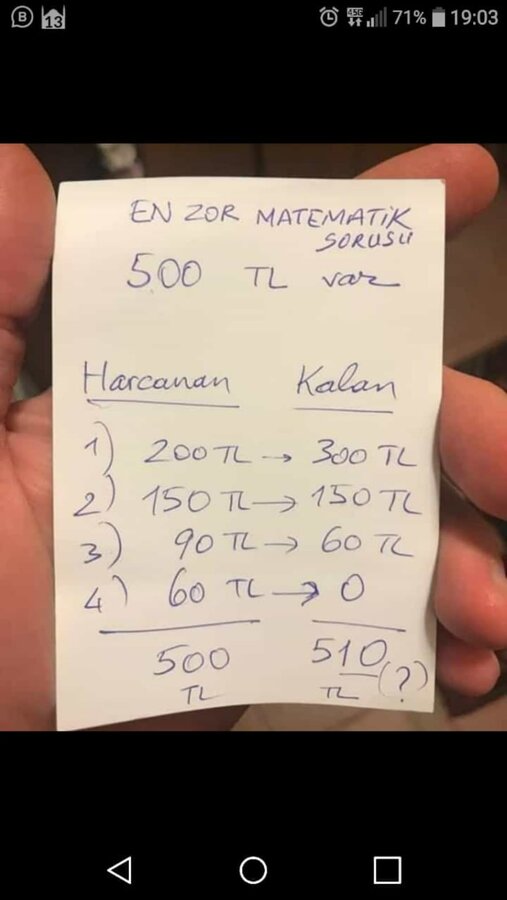 B 13 4.5G 71% 19:03
EN ZOR MATEMATİK
SORUSU
500 TL var
Harcanan Kalan
1) 200 TL → 300 TL
2) 150 TL → 150 TL
3) 90 TL → 60 TL
4) 60 TL → 0
500 510 (?)
TL TL